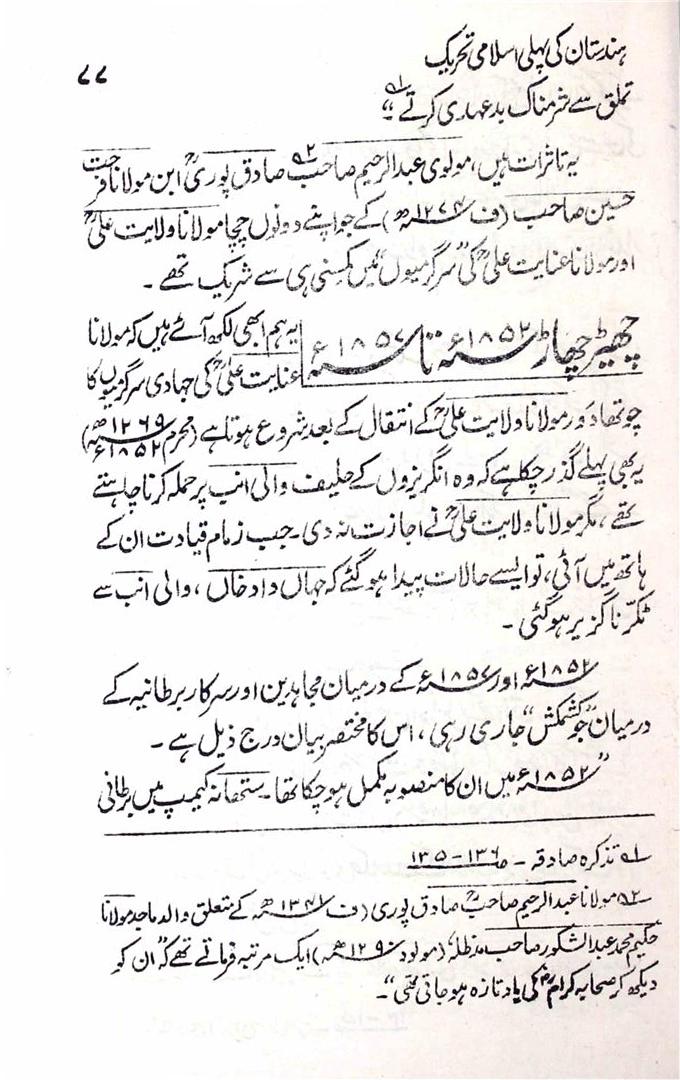 ہندستان کی پہلی اسلامی تحریک
۷۷
تملق سے شرمناک بدعہدی کرتے ؂۱"
یہ تاثرات ہیں، مولوی عبدالرحیم صاحب ؂۲ صادق پوریؒ ابن مولانا فرحت
حسین صاحب (ف ۱۲۷۴ھ) کے جو اپنے دونوں چچا مولانا ولایت علیؒ
اور مولانا عنایت علیؒ کی "سرگرمیوں" میں کمسنی ہی سے شریک تھے۔
چھیڑ چھاڑ ۱۸۵۲ء تا ۱۸۵۷ء
یہ ہم ابھی لکھ آئے ہیں کہ مولانا
عنایت علیؒ کی جہادی سرگرمیوں کا
چوتھا دَور مولانا ولایت علیؒ کے انتقال کے بعد شروع ہوتا ہے (محرم ۱۲۶۹ھ ۱۸۵۲ء)
یہ بھی پہلے گذر چکا ہے کہ وہ انگریزوں کے حلیف والی انب پر حملہ کرنا چاہتے
تھے، مگر مولانا ولایت علیؒ نے اجازت نہ دی۔ جب زمام قیادت ان کے
ہاتھ میں آئی، تو ایسے حالات پیدا ہو گئے کہ جہاں داد خاں، والی انب سے
ٹکرّ ناگزیر ہو گئی۔
۱۸۵۲ء اور ۱۸۵۷ء کے درمیان مجاہدین اور سرکار برطانیہ کے
درمیان "جو کشمکش" جاری رہی، اس کا مختصر بیان درج ذیل ہے۔
"۱۸۵۲ء میں ان کا منصوبہ مکمل ہو چکا تھا۔ ستھانہ کیمپ میں برطانی
؂۱ تذکرہ صادقہ - ص ۱۳۶-۱۳۵
؂۲ مولانا عبدالرحیم صاحبؒ صادق پوری (ف ۱۳۴۱ھ) کے متعلق والد ماجد مولانا
حکیم محمد عبدالشکور صاحب مدظلہٗ (مولود ۱۲۹۰ھ) ایک مرتبہ فرماتے تھے کہ "ان کو
دیکھ کر صحابہ کرامؓ کی یاد تازہ ہو جاتی تھی"۔